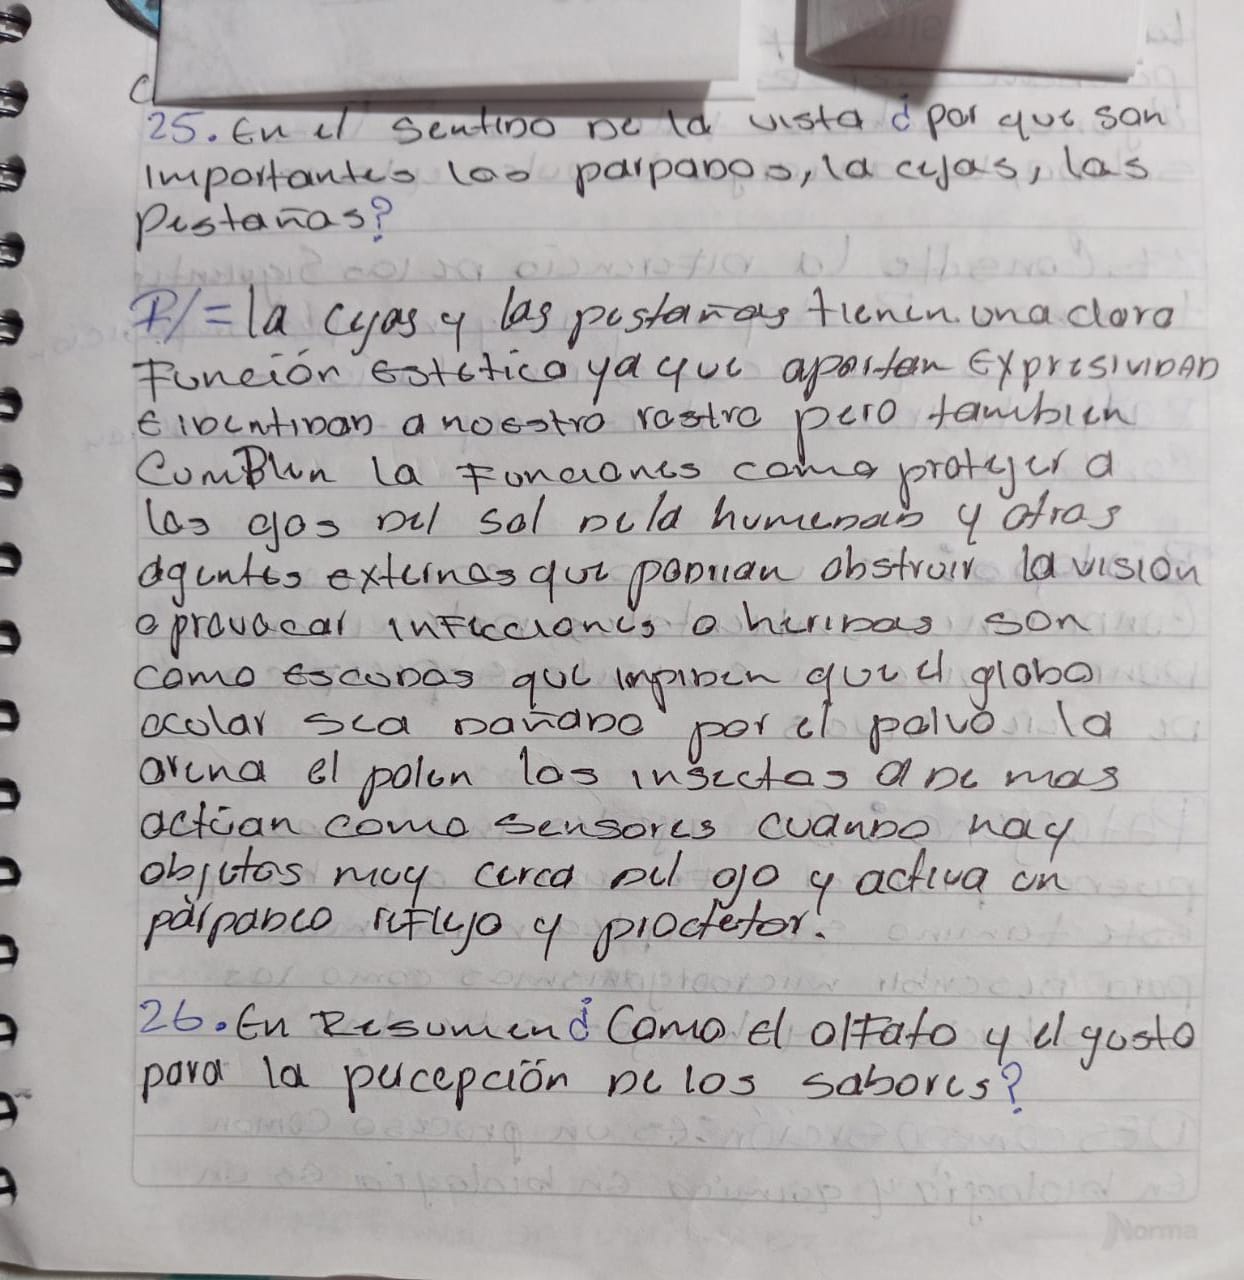 25. En el sentido de la vista ¿por que son
importantes los parpados, la cejas, las
pestañas?
R/= la cejas y las pestañas tienen una clara
Función estetica ya que aportan Expresividad
e identidad a nuestro rostro pero tambien
Cumplen la Funciones como protejer a
los ojos del sol de la humedad y otros
agentes externos que podrian obstruir la vision
o provocar infecciones o heridas son
como escobas que impiden que el globo
ocular sea dañado por el polvo la
arena el polen los insectos a de mas
actúan como sensores cuando hay
objetos muy cerca del ojo y activa un
parpadeo reflejo y proctetor.
26. En Resumen ¿Como el olfato y el gusto
para la pecepción de los sabores?
Norma